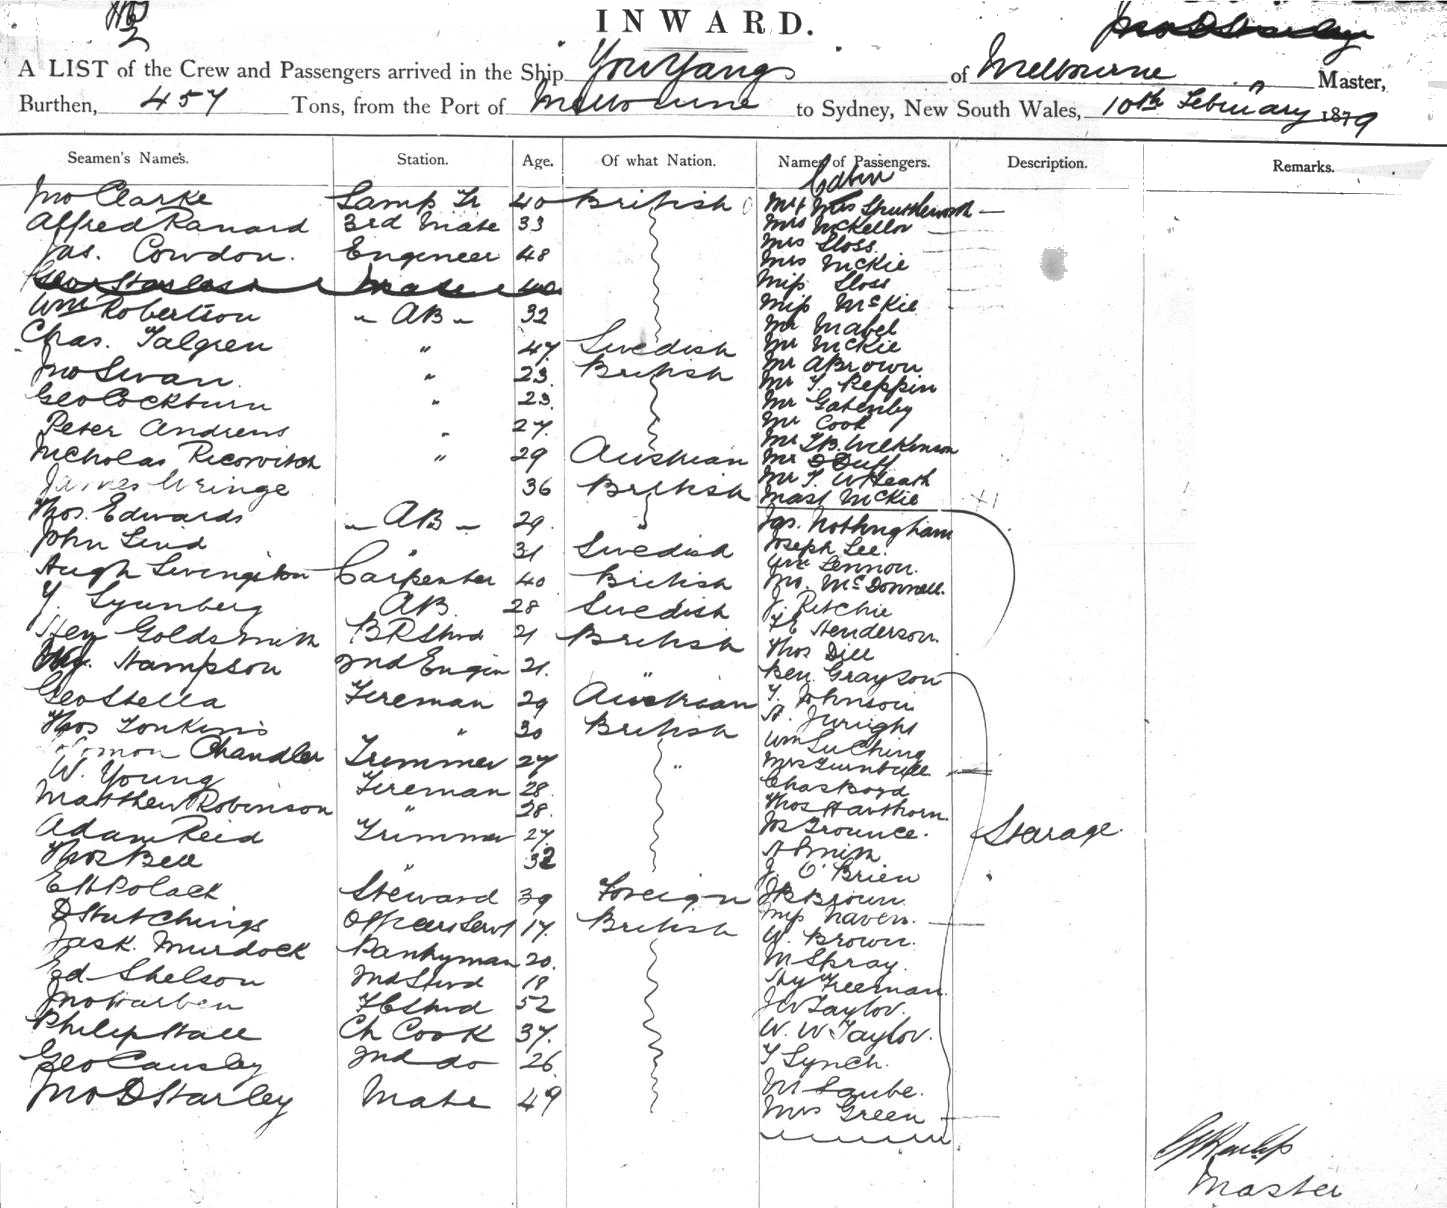 INWARD.
A LIST of the Crew and Passengers arrived in the Ship You Yangs of Melbourne Master,
Burthen, 457 Tons, from the Port of Melbourne to Sydney, New South Wales, 10th February 1879
Seamen's Names. Station. Age. Of what Nation. Names of Passengers. Description. Remarks.
Cabin
Jno Clarke Lamp Tr 40 British Mr & Mrs Shuttleworth
Alfred Ranard 3rd Mate 33 Mrs McKellor
Jas. Cowdon. Engineer 48 Mrs Sloss
Mrs McKie
Mate 40 Miss Sloss
Wm Robertson AB 32 Miss McKie
Mr Mabel
Chas. Talgren " 47 Swedish Mr McKie
Jno Swan " 23 British Mr A Brown
Mr T. Reppin
Geo Cockburn " 23 Mr Gatenby
Peter Andrews " 27 Mr Cook
Mr T.B. Wilkinson
Nicholas " 29 Austrian Mr D Duff
Mr T. W Heath
James Wringe 36 British Mast McKie
Thos. Edwards AB 29 Jas. Nottingham
John Lind " 31 Swedish Joseph Lee.
Lennon.
Hugh Livingston Carpenter 40 British Jno. McDonnell.
AB 28 Swedish J. Ritchie
Hy Goldsmith BRStwd 21 British Henderson.
Thos Dill
Hampson 2nd Engin 21. " Ben Grayson
Geo Stella Fireman 29 Austrian T. Johnson
Thos Tonkins " 30 British
Chandler Trimmer 27 " Mrs Turnbull
W. Young Fireman 28 Chas Boyd
Matthew Robinson " 28. Thos Hawthorn.
Adam Reid Trimmer 27 Starage
Thos Bell " 32 Smith
J. O'Brien
E H Polack Steward 39 Foreign J B Brown
D Hutchings Officers Servt 17 British Miss Haven.
W. Brown.
Jas K. Murdock Pantryman 20. M Spray.
Ed Shelson 2nd Stwd 18 Hy Freeman.
Jno 52 J W Taylor.
Philip Hall Ch Cook 37. W. W Taylor.
Geo Causley 2nd do 26 T Lynch.
M Laube.
Jno D Starley Mate 49 Mrs Green
Master